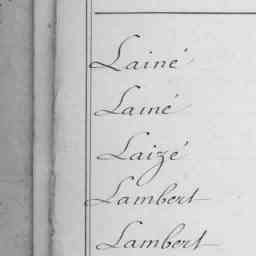 Lainé
Lainé
Laizé
Lambert
Lambert